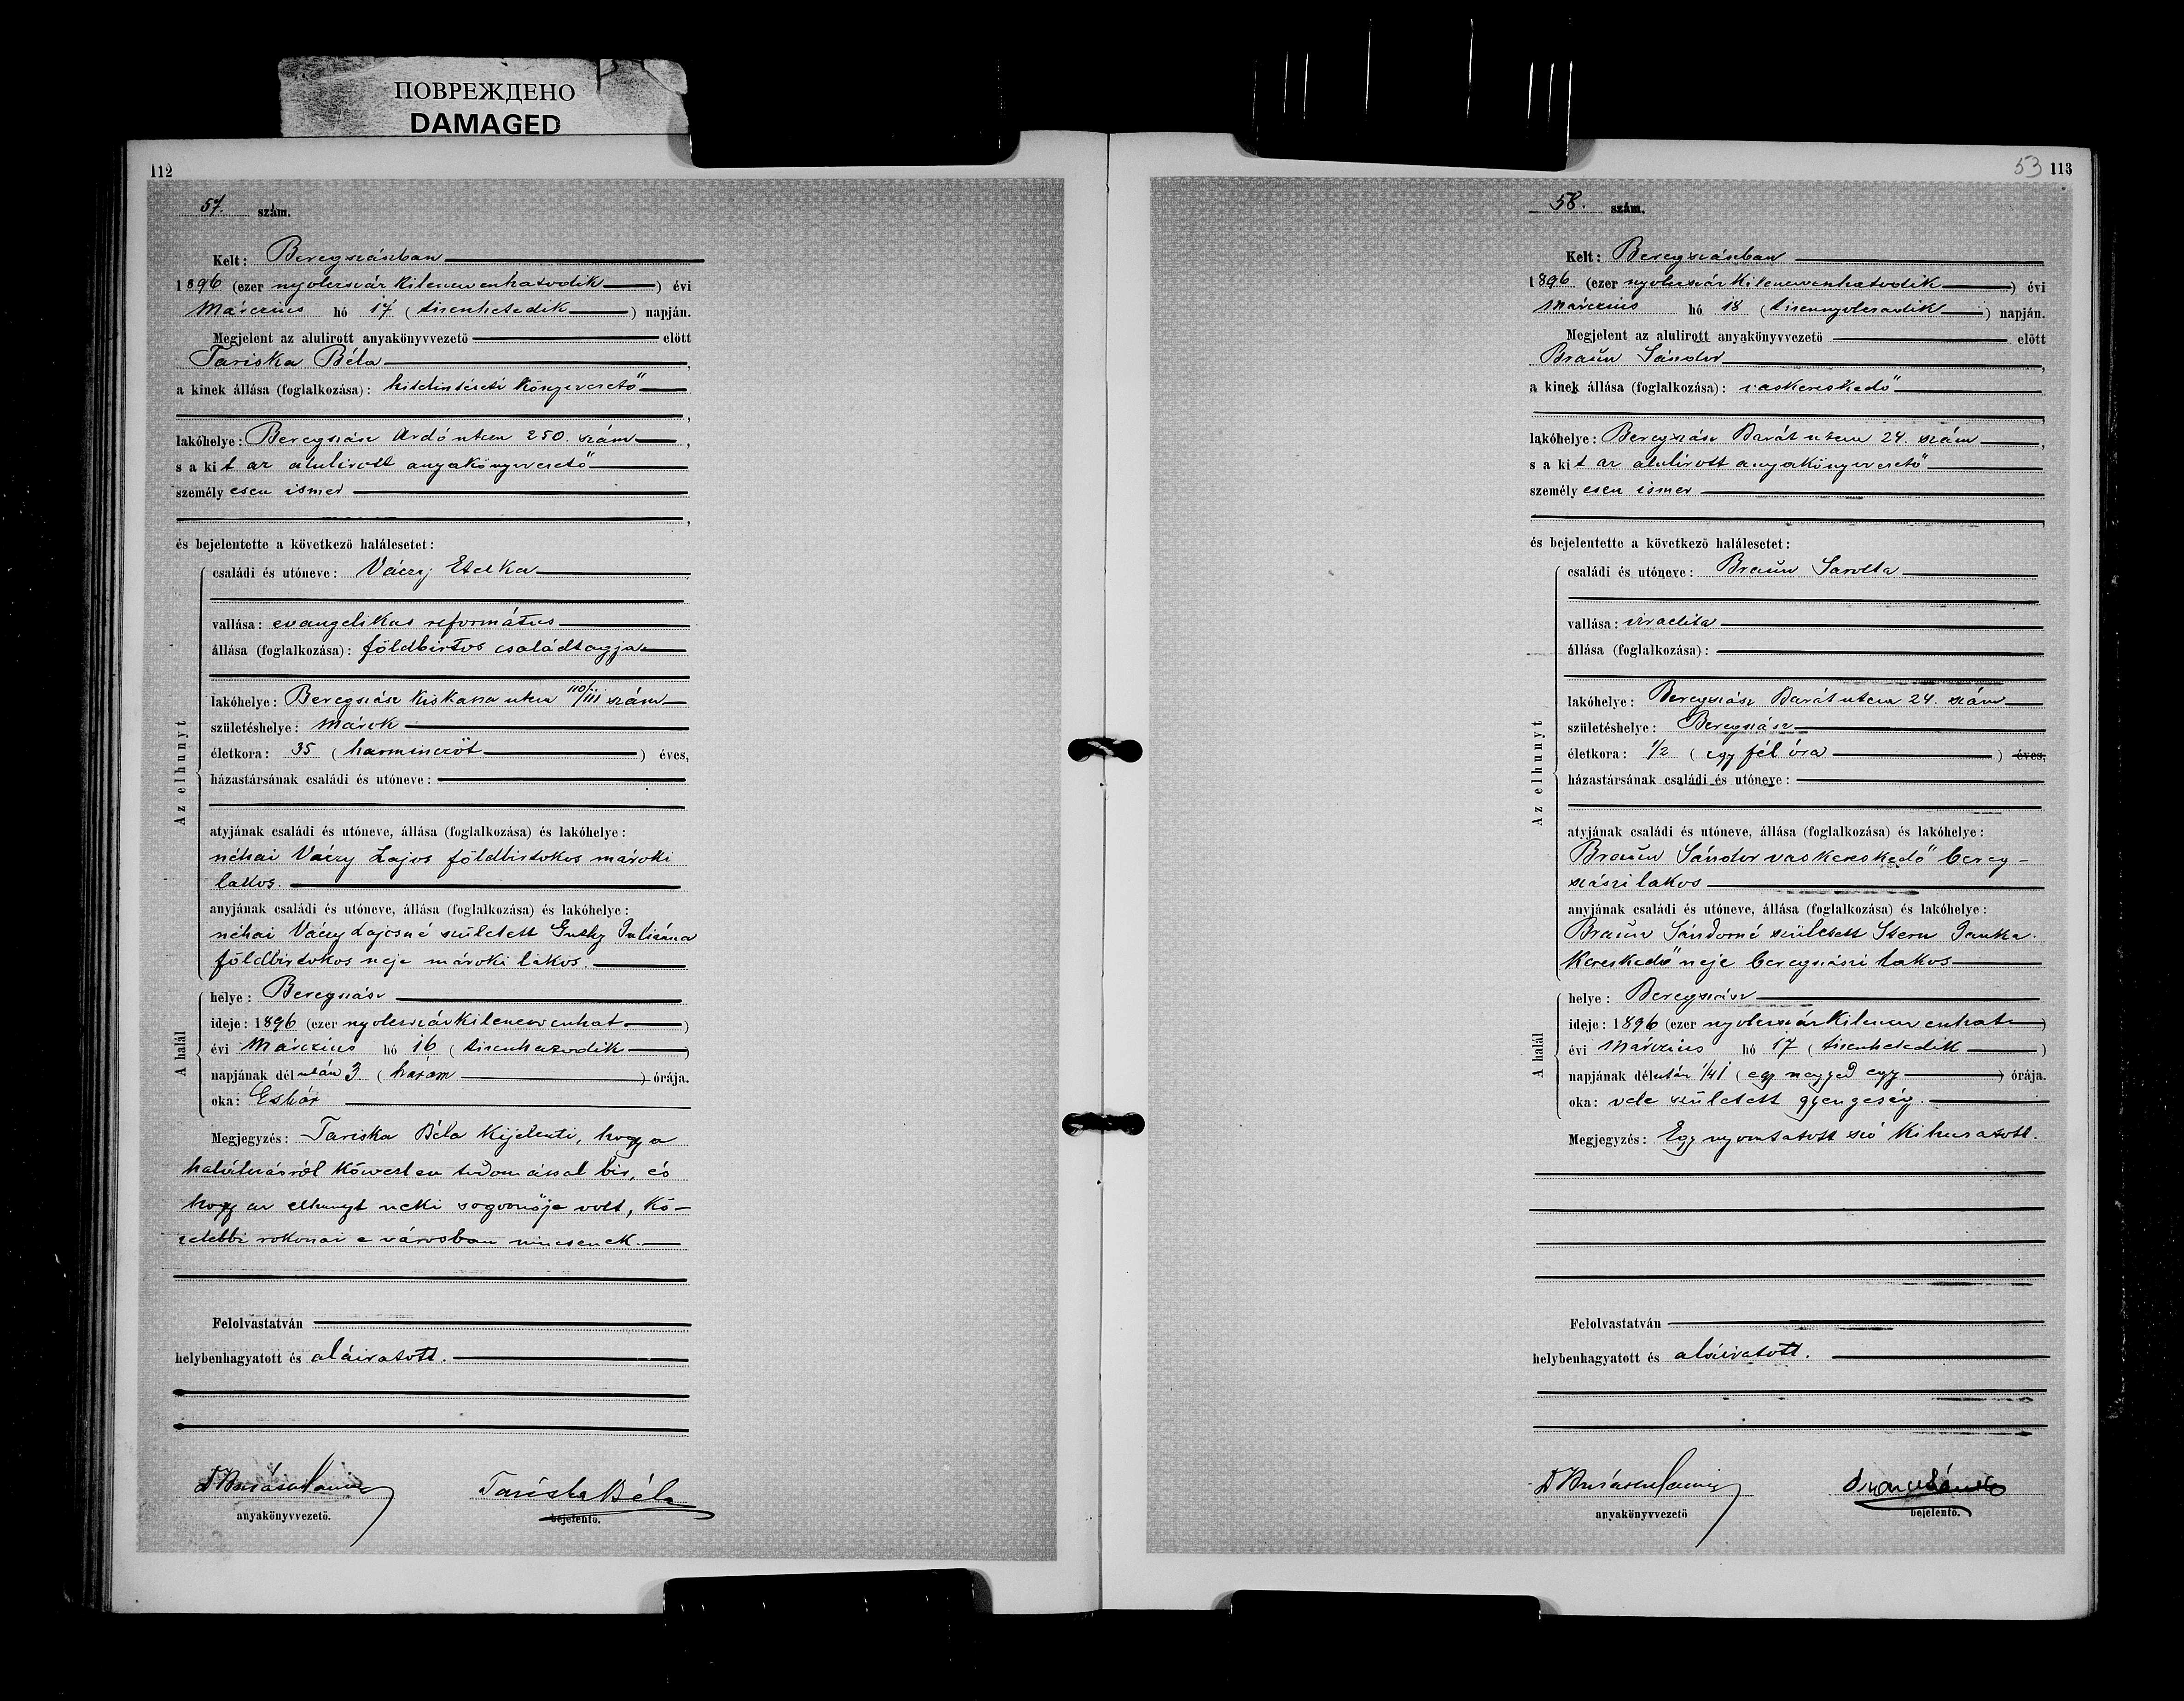 ПОВРЕЖДЕНО
DAMAGED
112
57. szám.
Kelt: Beregszászban
1896 (ezer nyolczszáz kilenczvenhatodik) évi
Márczius hó 17 (tizenhetedik) napján.
Megjelent az alulirott anyakönyvvezető előtt
Tariska Béla,
a kinek állása (foglalkozása): hitelintézeti könyvvezető
,
lakóhelye: Beregszász Ardó utcza 250. szám,
s a kit az alulirott anyakönyvvezető
személyesen ismer
,
és bejelentette a következő halálesetet:
Az elhunyt
családi és utóneve: Váczy Etelka
vallása: evangelikus református
állása (foglalkozása): földbirtos családtagja
lakóhelye: Beregszász Kiskassa utcza 110/111 szám
születéshelye: Márok
életkora: 35 (harminczöt) éves,
házastársának családi és utóneve:
atyjának családi és utóneve, állása (foglalkozása) és lakóhelye:
néhai Váczy Lajos földbirtokos mároki
lakos.
anyjának családi és utóneve, állása (foglalkozása) és lakóhelye:
néhai Váczy Lajosné született Juliánna
földbirtokos neje mároki lakos.
A halál
helye: Beregszász
ideje: 1896 (ezer nyolczszáz kilenczvenhat)
évi Márczius hó 16 (tizenhatodik)
napjának délután 3. (három) órája.
oka: Eskór
Megjegyzés: Tariska Béla kijelenti, hogy a
halálozásról közvetlen tudomással bir, és
hogy az elhunyt neki sogornője volt, kö-
zelebbi rokonai e városban nincsenek.
Felolvastatván
helybenhagyatott és aláiratott.
Tariska Béla
anyakönyvvezető. bejelentő.
53 113
58. szám.
Kelt: Beregszászban
1896 (ezer nyolczszáz kilenczvenhatodik) évi
Márczius hó 18 (tizennyolczadik) napján.
Megjelent az alulirott anyakönyvvezető előtt
Braun Sándor,
a kinek állása (foglalkozása): vaskereskedő
,
lakóhelye: Beregszász Barát utcza 24. szám,
s a kit az alulirott anyakönyvvezető
személyesen ismer
,
és bejelentette a következő halálesetet:
Az elhunyt
családi és utóneve: Braun Sarolta
vallása: izraelita
állása (foglalkozása):
lakóhelye: Beregszász Barát utcza 24. szám
születéshelye: Beregszász
életkora: 1/2 (egy fél óra) éves,
házastársának családi és utóneve:
atyjának családi és utóneve, állása (foglalkozása) és lakóhelye:
Braun Sándor vaskereskedő bereg-
szászi lakos
anyjának családi és utóneve, állása (foglalkozása) és lakóhelye:
Braun Sándorné született Stern Janka
kereskedő neje beregszászi lakos
A halál
helye: Beregszász
ideje: 1896 (ezer nyolczszáz kilenczvenhat)
évi Márczius hó 17 (tizenhetedik)
napjának délután 1/41 (egy negyed egy) órája.
oka: vele született gyengeség.
Megjegyzés: Egy nyomtatott szó kihuzatott.
Felolvastatván
helybenhagyatott és aláiratott.
anyakönyvvezető bejelentő.